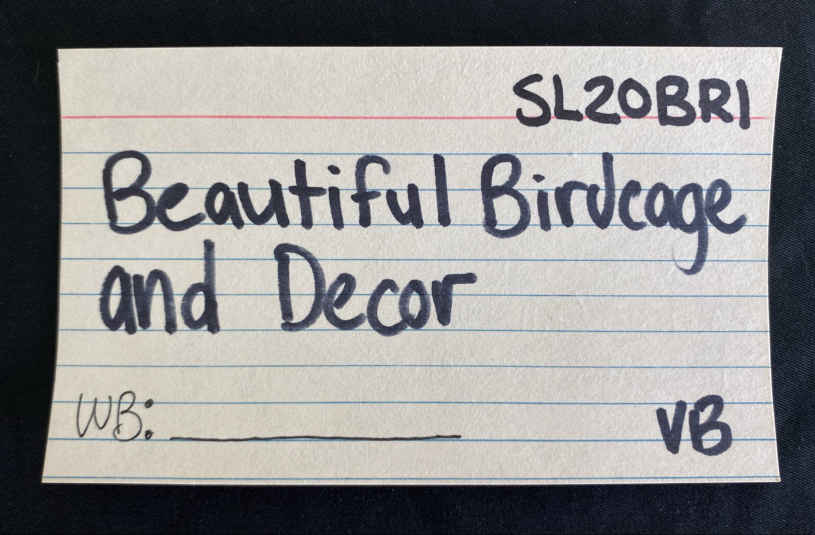 SL20BR1
Beautiful Birdcage
and Decor
WB: ____________
VB